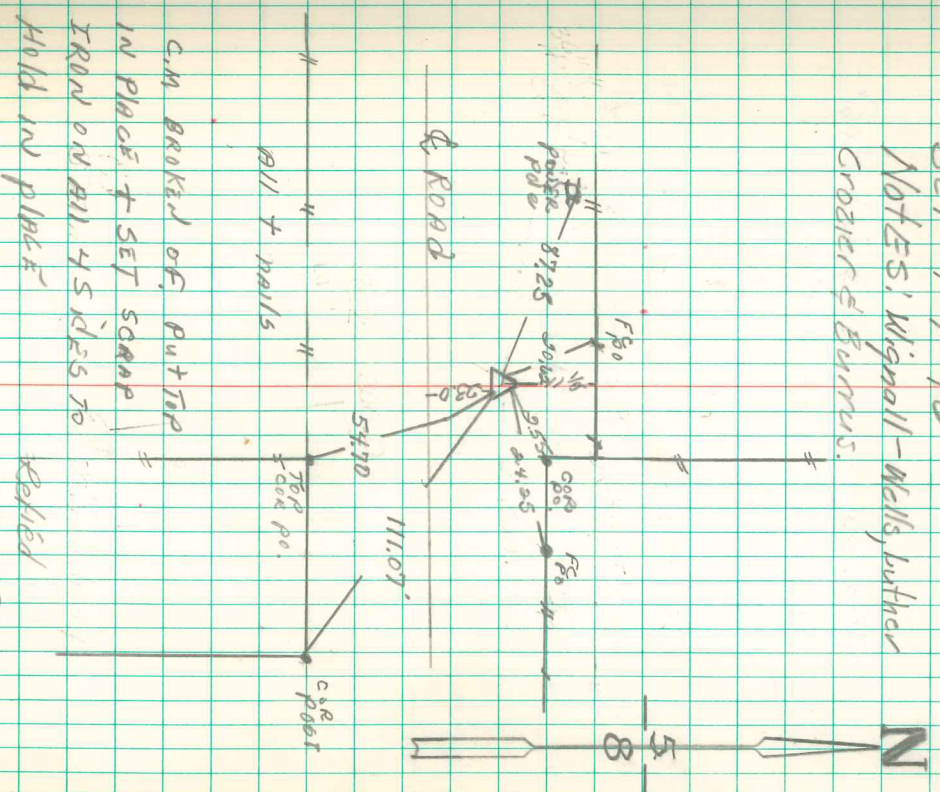 NotES: Wignall-Wells, Luther
Crozier & Burrus.
N
5
8
Power
Pole
87.25
Fc
po
9.55
COR
po.
24.25
Fc
po
℄ ROAD
-23.0-
54.70
111.07'
TOP
COR po.
COR
POST
All + nails
C.M BROKEN OF. Put TOP
IN PlACE + SET SCRAP
IRON ON All 4 SidES TO
Hold IN PlACE